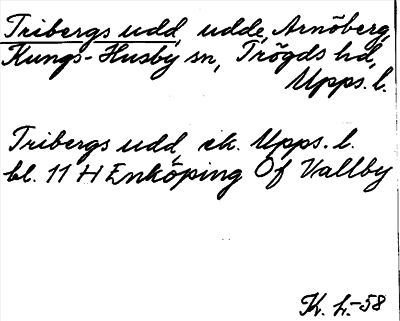 Tribergs udd, udde, Arnöberg,
Kungs-Husby sn, Trögds hd,
Upps. l.
Tribergs udd, ek. Upps. l.
bl. 11 H Enköping Of Vallby
K. h.-58